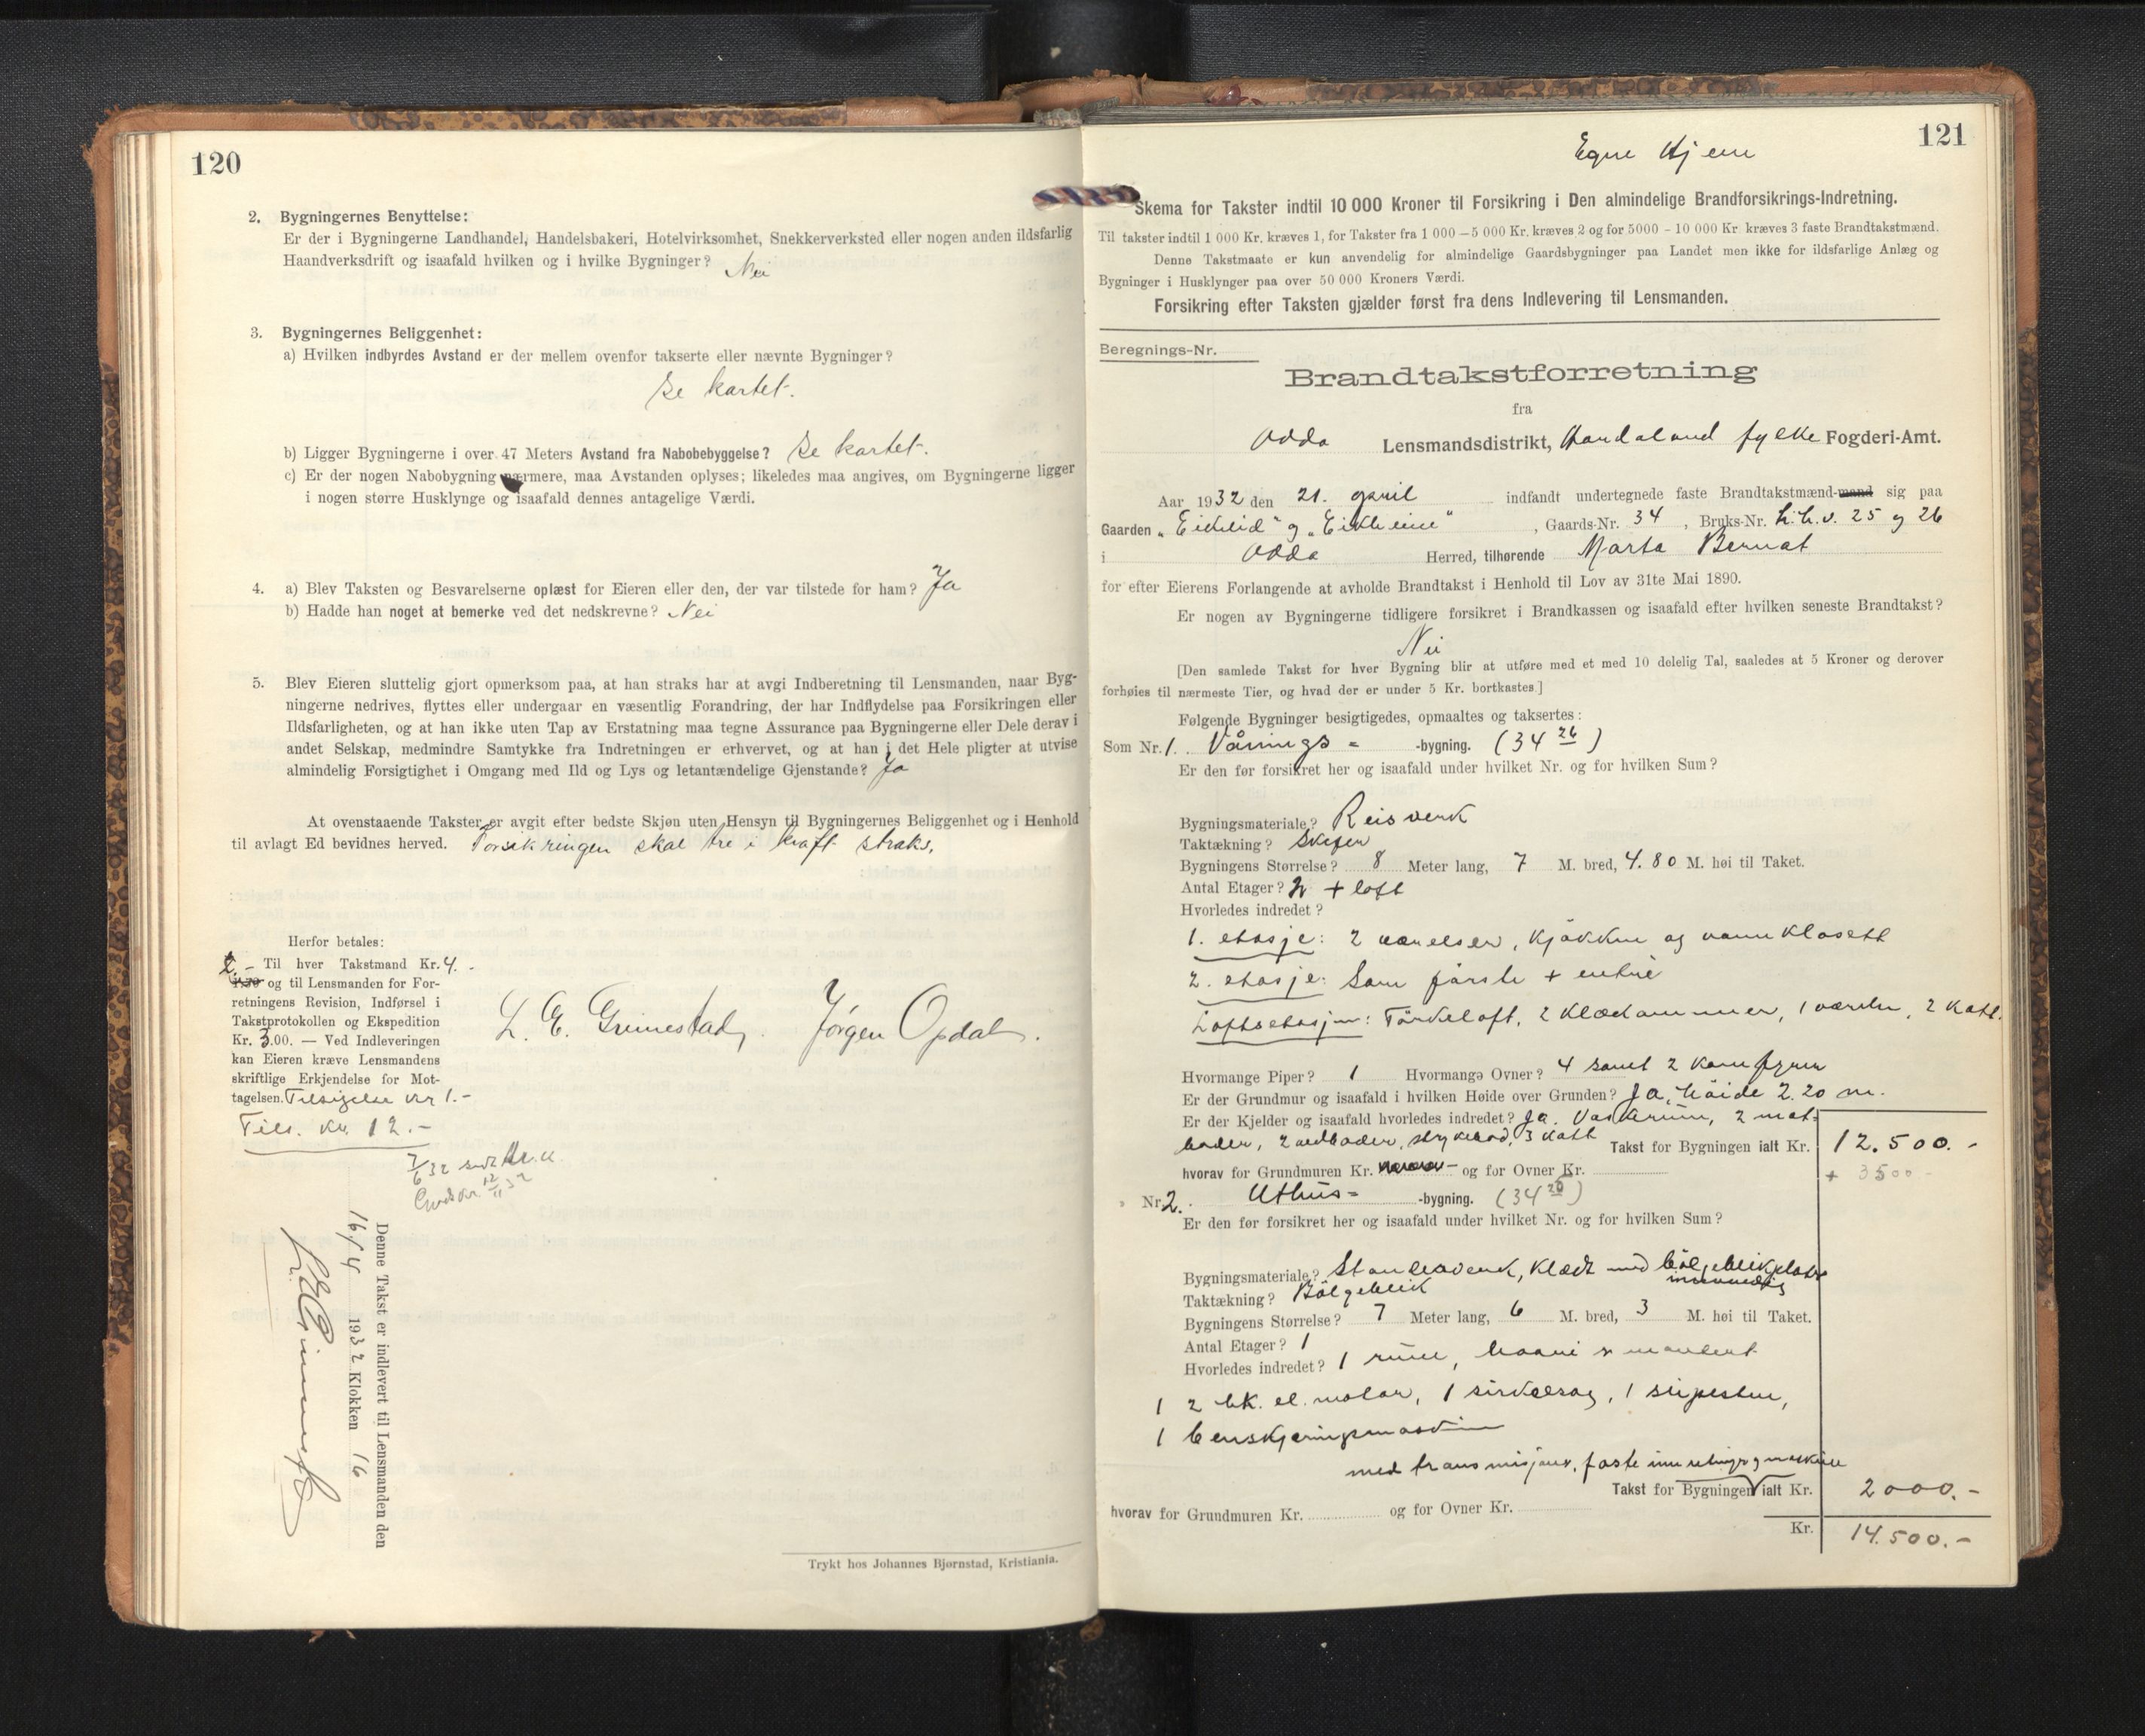 120
2. Bygningernes Benyttelse:
Er der i Bygningerne Landhandel, Handelsbakeri, Hotelvirksomhet, Snekkerverksted eller nogen anden ildsfarlig
Haandverksdrift og isaafald hvilken og i hvilke Bygninger? Nei
3. Bygningernes Beliggenhet:
a) Hvilken indbyrdes Avstand er der mellem ovenfor takserte eller nævnte Bygninger?
Se kartet.
b) Ligger Bygningerne i over 47 Meters Avstand fra Nabobebyggelse? Se kartet.
c) Er der nogen Nabobygning nærmere, maa Avstanden oplyses; likeledes maa angives, om Bygningerne ligger
i nogen større Husklynge og isaafald dennes antagelige Værdi.
4. a) Blev Taksten og Besvarelserne oplæst for Eieren eller den, der var tilstede for ham? Ja
b) Hadde han noget at bemerke ved det nedskrevne? Nei
5. Blev Eieren sluttelig gjort opmerksom paa, at han straks har at avgi Indberetning til Lensmanden, naar Byg-
ningerne nedrives, flyttes eller undergaar en væsentlig Forandring, der har Indflydelse paa Forsikringen eller
Ildsfarligheten, og at han ikke uten Tap av Erstatning maa tegne Assurance paa Bygningerne eller Dele derav i
andet Selskap, medmindre Samtykke fra Indretningen er erhvervet, og at han i det Hele pligter at utvise
almindelig Forsigtighet i Omgang med Ild og Lys og letantændelige Gjenstande? Ja
At ovenstaaende Takster er avgit efter bedste Skjøn uten Hensyn til Bygningernes Beliggenhet og i Henhold
til avlagt Ed bevidnes herved. Forsikringen skal tre i kraft straks.
Herfor betales:
2.- Til hver Takstmand Kr. 4.-
og til Lensmanden for For-
retningens Revision, Indførsel i
Takstprotokollen og Ekspedition
Kr. 3.00. — Ved Indleveringen
kan Eieren kræve Lensmandens
skriftlige Erkjendelse for Mot-
tagelsen. Tilsigelse kr 1.-
Tils. kr. 12.-
L. E. Grimestad, Jørgen Opdal.
Denne Takst er indlevert til Lensmanden den
16/4 1932 Klokken 16
Trykt hos Johannes Bjørnstad, Kristiania.
121
Skema for Takster indtil 10 000 Kroner til Forsikring i Den almindelige Brandforsikrings-Indretning.
Til takster indtil 1 000 Kr. kræves 1, for Takster fra 1 000 — 5 000 Kr. kræves 2 og for 5000 - 10 000 Kr. kræves 3 faste Brandtakstmænd.
Denne Takstmaate er kun anvendelig for almindelige Gaardsbygninger paa Landet men ikke for ildsfarlige Anlæg og
Bygninger i Husklynger paa over 50 000 Kroners Værdi.
Forsikring efter Taksten gjælder først fra dens Indlevering til Lensmanden.
Beregnings-Nr.
Brandtakstforretning
fra
Odda Lensmandsdistrikt, Hordaland fylke Fogderi-Amt.
Aar 1932 den 21. april indfandt undertegnede faste Brandtakstmænd-mand sig paa
Gaarden "Eikelid" og "Eikheim", Gaards-Nr. 34, Bruks-Nr. h.h.v. 25 og 26
i Odda Herred, tilhørende Marta Bernat
for efter Eierens Forlangende at avholde Brandtakst i Henhold til Lov av 31te Mai 1890.
Er nogen av Bygningerne tidligere forsikret i Brandkassen og isaafald efter hvilken seneste Brandtakst?
Nei
[Den samlede Takst for hver Bygning blir at utføre med et med 10 delelig Tal, saaledes at 5 Kroner og derover
forhøies til nærmeste Tier, og hvad der er under 5 Kr. bortkastes.]
Følgende Bygninger besigtigedes, opmaaltes og taksertes:
Som Nr. 1. Vånings- -bygning. (34 26)
Er den før forsikret her og isaafald under hvilket Nr. og for hvilken Sum?
Bygningsmateriale? Reisverk
Taktækning? Skifer
Bygningens Størrelse? 8 Meter lang, 7 M. bred, 4.80 M. høi til Taket.
Antal Etager? 2 + loft
Hvorledes indredet?
1. etasje: 2 værelser, kjøkken og vannklosett
2. etasje: Som første + entré
Loftsetasjen: Tørkeloft, 2 klædkammer, 1 værelse, 2 kott.
Hvormange Piper? 1 Hvormange Ovner? 4 samt 2 komfyrer
Er der Grundmur og isaafald i hvilken Høide over Grunden? Ja, høide 2.20 m.
Er der Kjelder og isaafald hvorledes indredet? Ja. Vaskerum, 2 mat-
boder, 2 vedboder, strykebod, 3 kott Takst for Bygningen ialt Kr. 12.500.-
hvorav for Grundmuren Kr. og for Ovner Kr. + 3500 -
Nr 2. Uthus- -bygning. (34 26)
Er den før forsikret her og isaafald under hvilket Nr. og for hvilken Sum?
Bygningsmateriale? klædt med bølgeblikplater
innvendig
Taktækning? Bølgeblik
Bygningens Størrelse? 7 Meter lang, 6 M. bred, 3 M. høi til Taket.
Antal Etager? 1
Hvorledes indredet? 1 rum, hvori er montert
1 2 hk. el. motor, 1 sirkelsag, 1 slipesten,
1 benskjæringsmaskin
med transmisjoner, faste innretninger og maskiner
Takst for Bygningen ialt Kr. 2000.-
hvorav for Grundmuren Kr. og for Ovner Kr.
Kr. 14.500.-